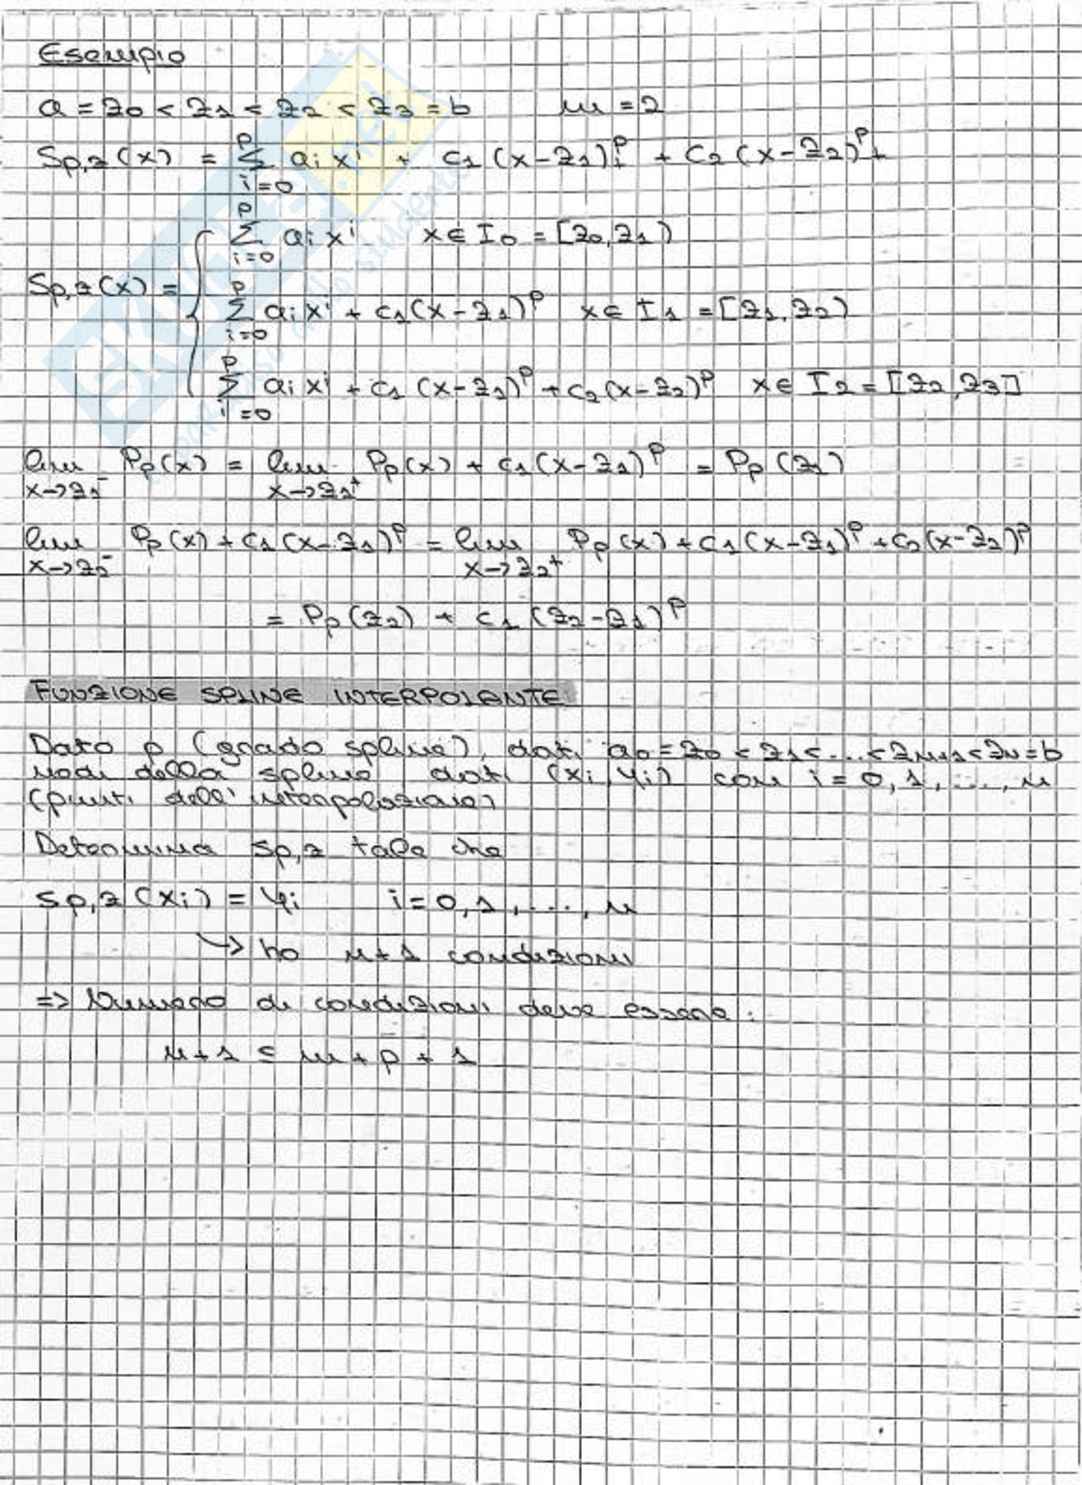 Esempio
a = z0 < z1 < z2 < z3 = b m = 2
Sp,z(x) = Σ_{i=0}^{p} ai x^i + c1 (x-z1)_+^p + c2 (x-z2)_+^p
Sp,z(x) = {
Σ_{i=0}^{p} ai x^i x ∈ I0 = [z0, z1)
Σ_{i=0}^{p} ai x^i + c1 (x-z1)^p x ∈ I1 = [z1, z2)
Σ_{i=0}^{p} ai x^i + c1 (x-z1)^p + c2 (x-z2)^p x ∈ I2 = [z2, z3]
lim_{x→z1^-} Pp(x) = lim_{x→z1^+} Pp(x) + c1 (x-z1)^p = Pp(z1)
lim_{x→z2^-} Pp(x) + c1 (x-z1)^p = lim_{x→z2^+} Pp(x) + c1 (x-z1)^p + c2 (x-z2)^p
= Pp(z2) + c1 (z2-z1)^p
FUNZIONE SPLINE INTERPOLANTE
Dato p (grado spline), dati a0 = z0 < z1 < ... < zm+1 < = b
nodi della spline dati (xi, yi) con i = 0, 1, ..., n
(punti dell' interpolazione)
Determina sp,z tale che
sp,z(xi) = yi i = 0, 1, ..., n
↳ ho n+1 condizioni
=> Numero di condizioni deve essere:
n+1 ≤ m + p + 1